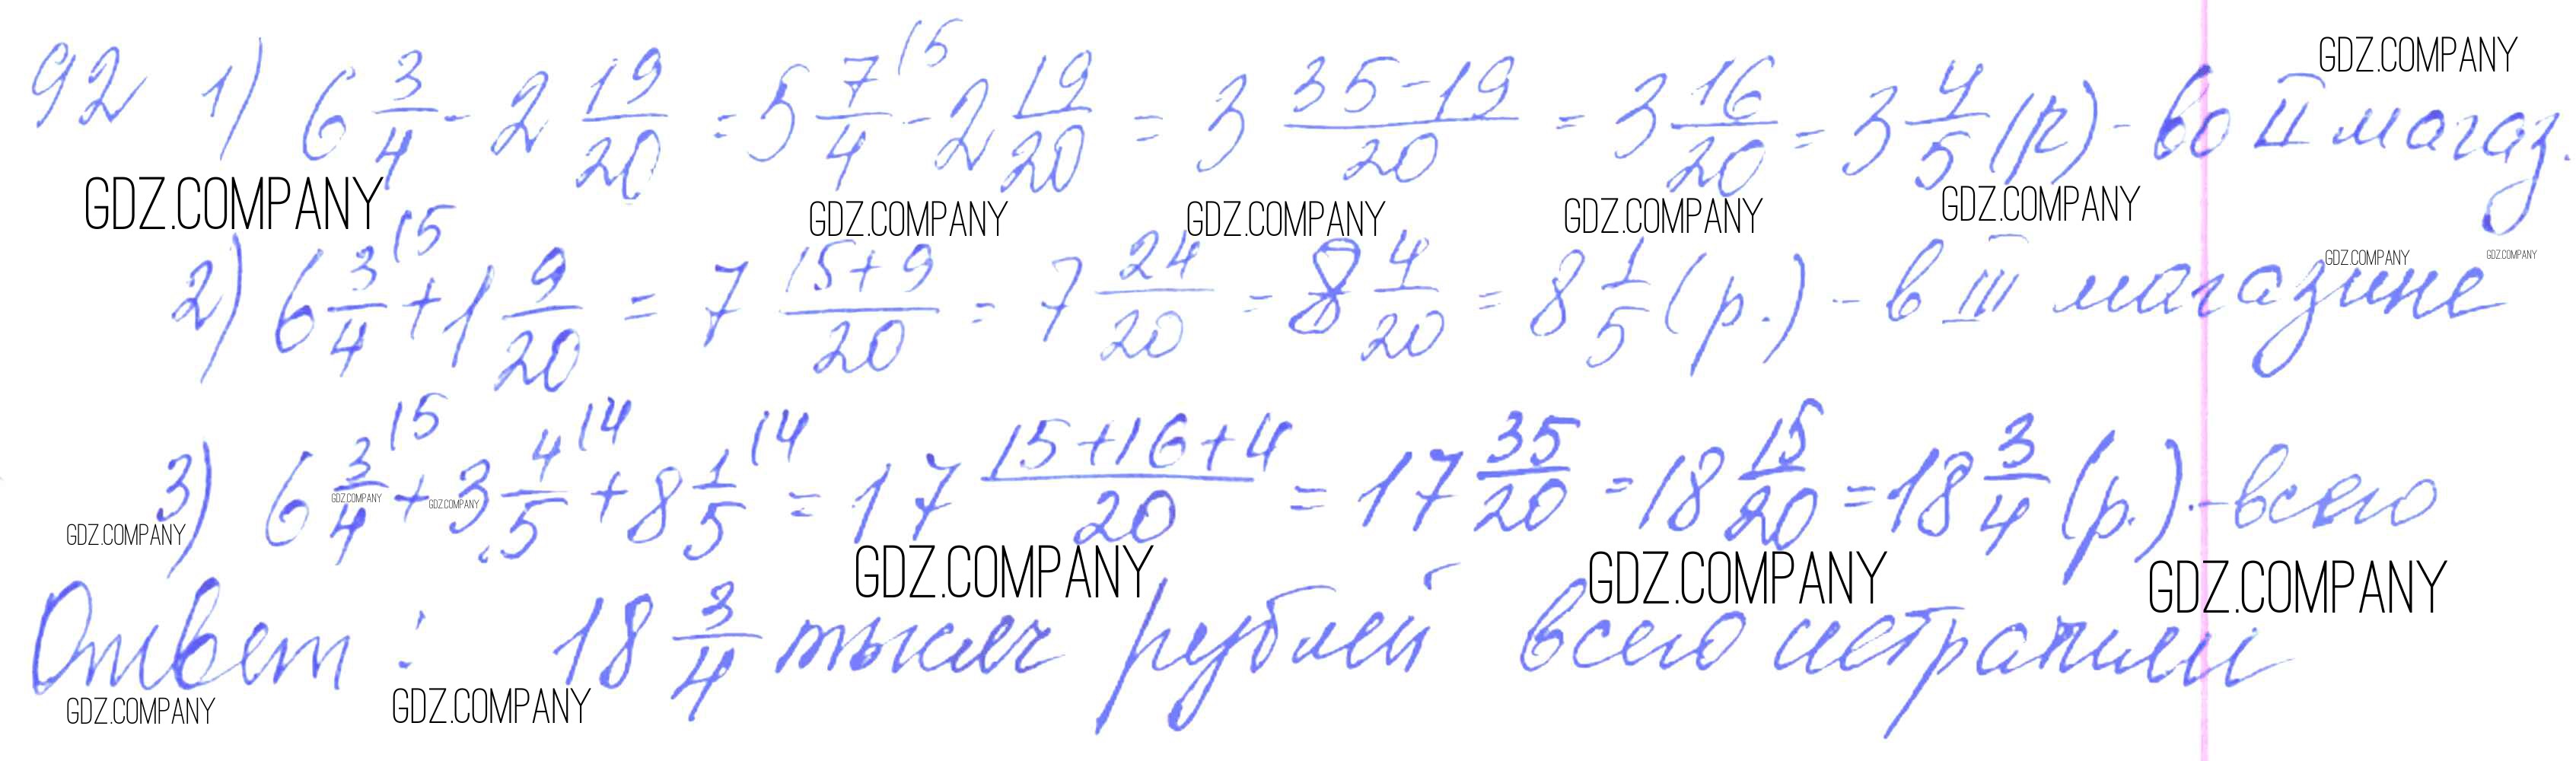 92 1) 6 3/4 - 2 19/20 = 5 7/4 (5 - 2 19/20 = 3 35-19/20 = 3 16/20 = 3 4/5 (р) - во II магаз.
GDZ.COMPANY
GDZ.COMPANY GDZ.COMPANY GDZ.COMPANY GDZ.COMPANY GDZ.COMPANY
2) 6 3/4 (5 + 1 9/20 = 7 15+9/20 = 7 24/20 = 8 4/20 = 8 1/5 (р.) - в III магазине
GDZ.COMPANY GDZ.COMPANY
3) 6 3/4 (5 + 3 4/5 (4 + 8 1/5 (4 = 17 15+16+4/20 = 17 35/20 = 18 15/20 = 18 3/4 (р.) - всего
GDZ.COMPANY GDZ.COMPANY GDZ.COMPANY
GDZ.COMPANY GDZ.COMPANY GDZ.COMPANY
Ответ: 18 3/4 тысяч рублей всего истратили
GDZ.COMPANY GDZ.COMPANY